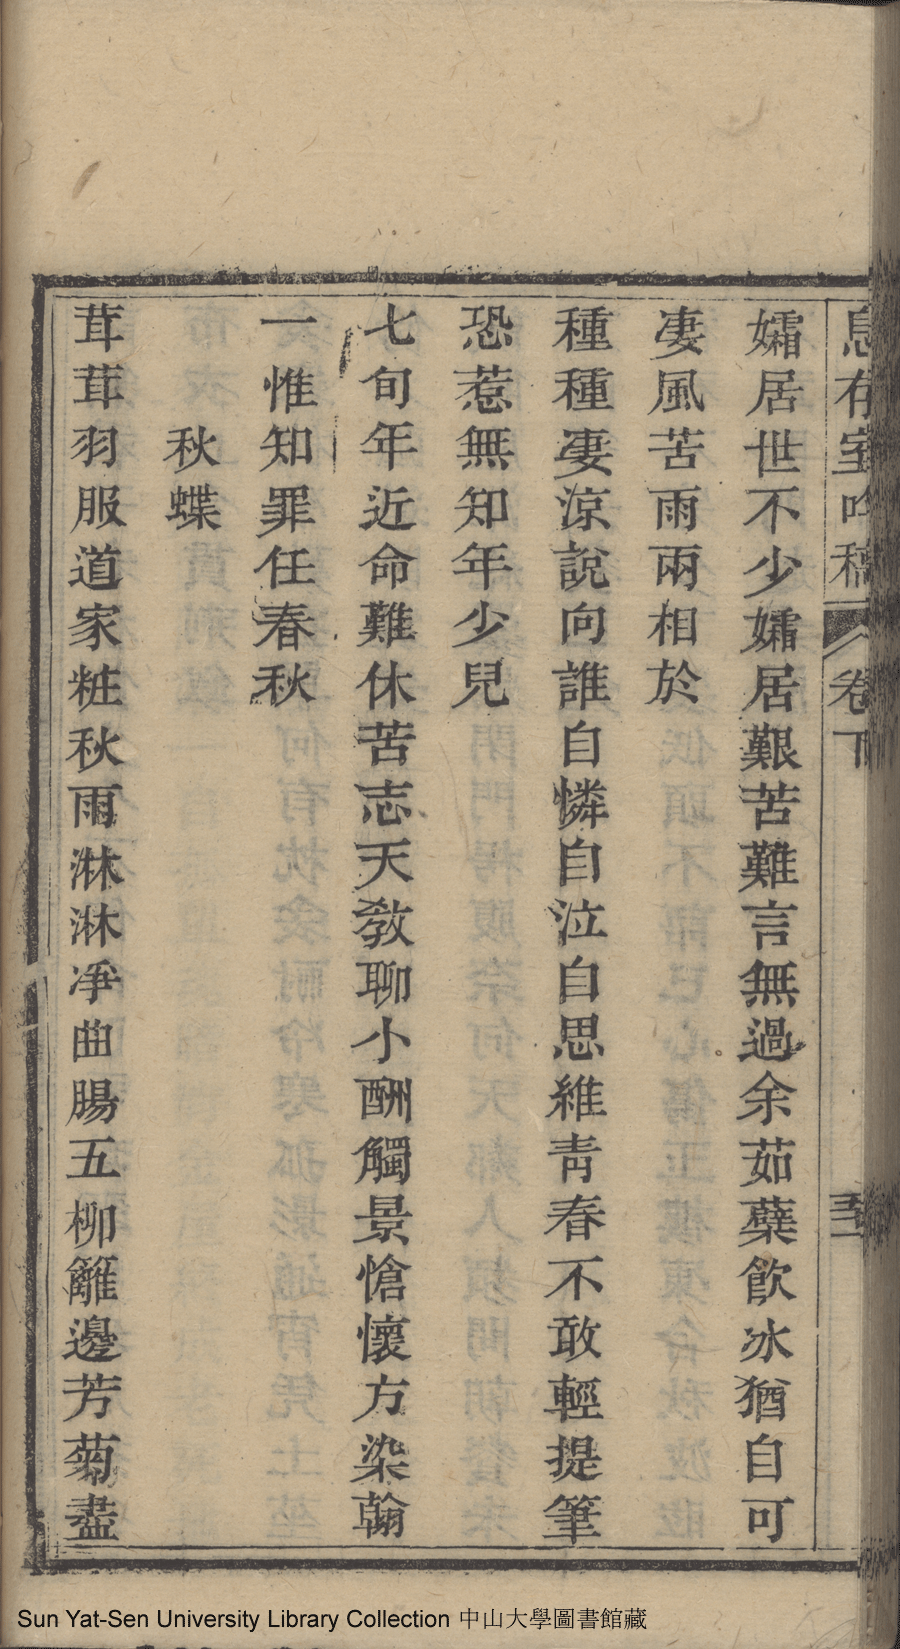 息存室吟稿 卷下
孀居世不少孀居艱苦難言無過余茹蘗飲冰猶自可
凄風苦雨兩相於
種種凄涼說向誰自憐自泣自思維青春不敢輕提筆
恐惹無知年少兒
七旬年近命難休苦志天教聊小酬觸景愴懷方染翰
一惟知罪任春秋
秋蝶
茸茸羽服道家粧秋雨淋淋凈曲腸五柳籬邊芳菊盡
Sun Yat-Sen University Library Collection 中山大學圖書館藏